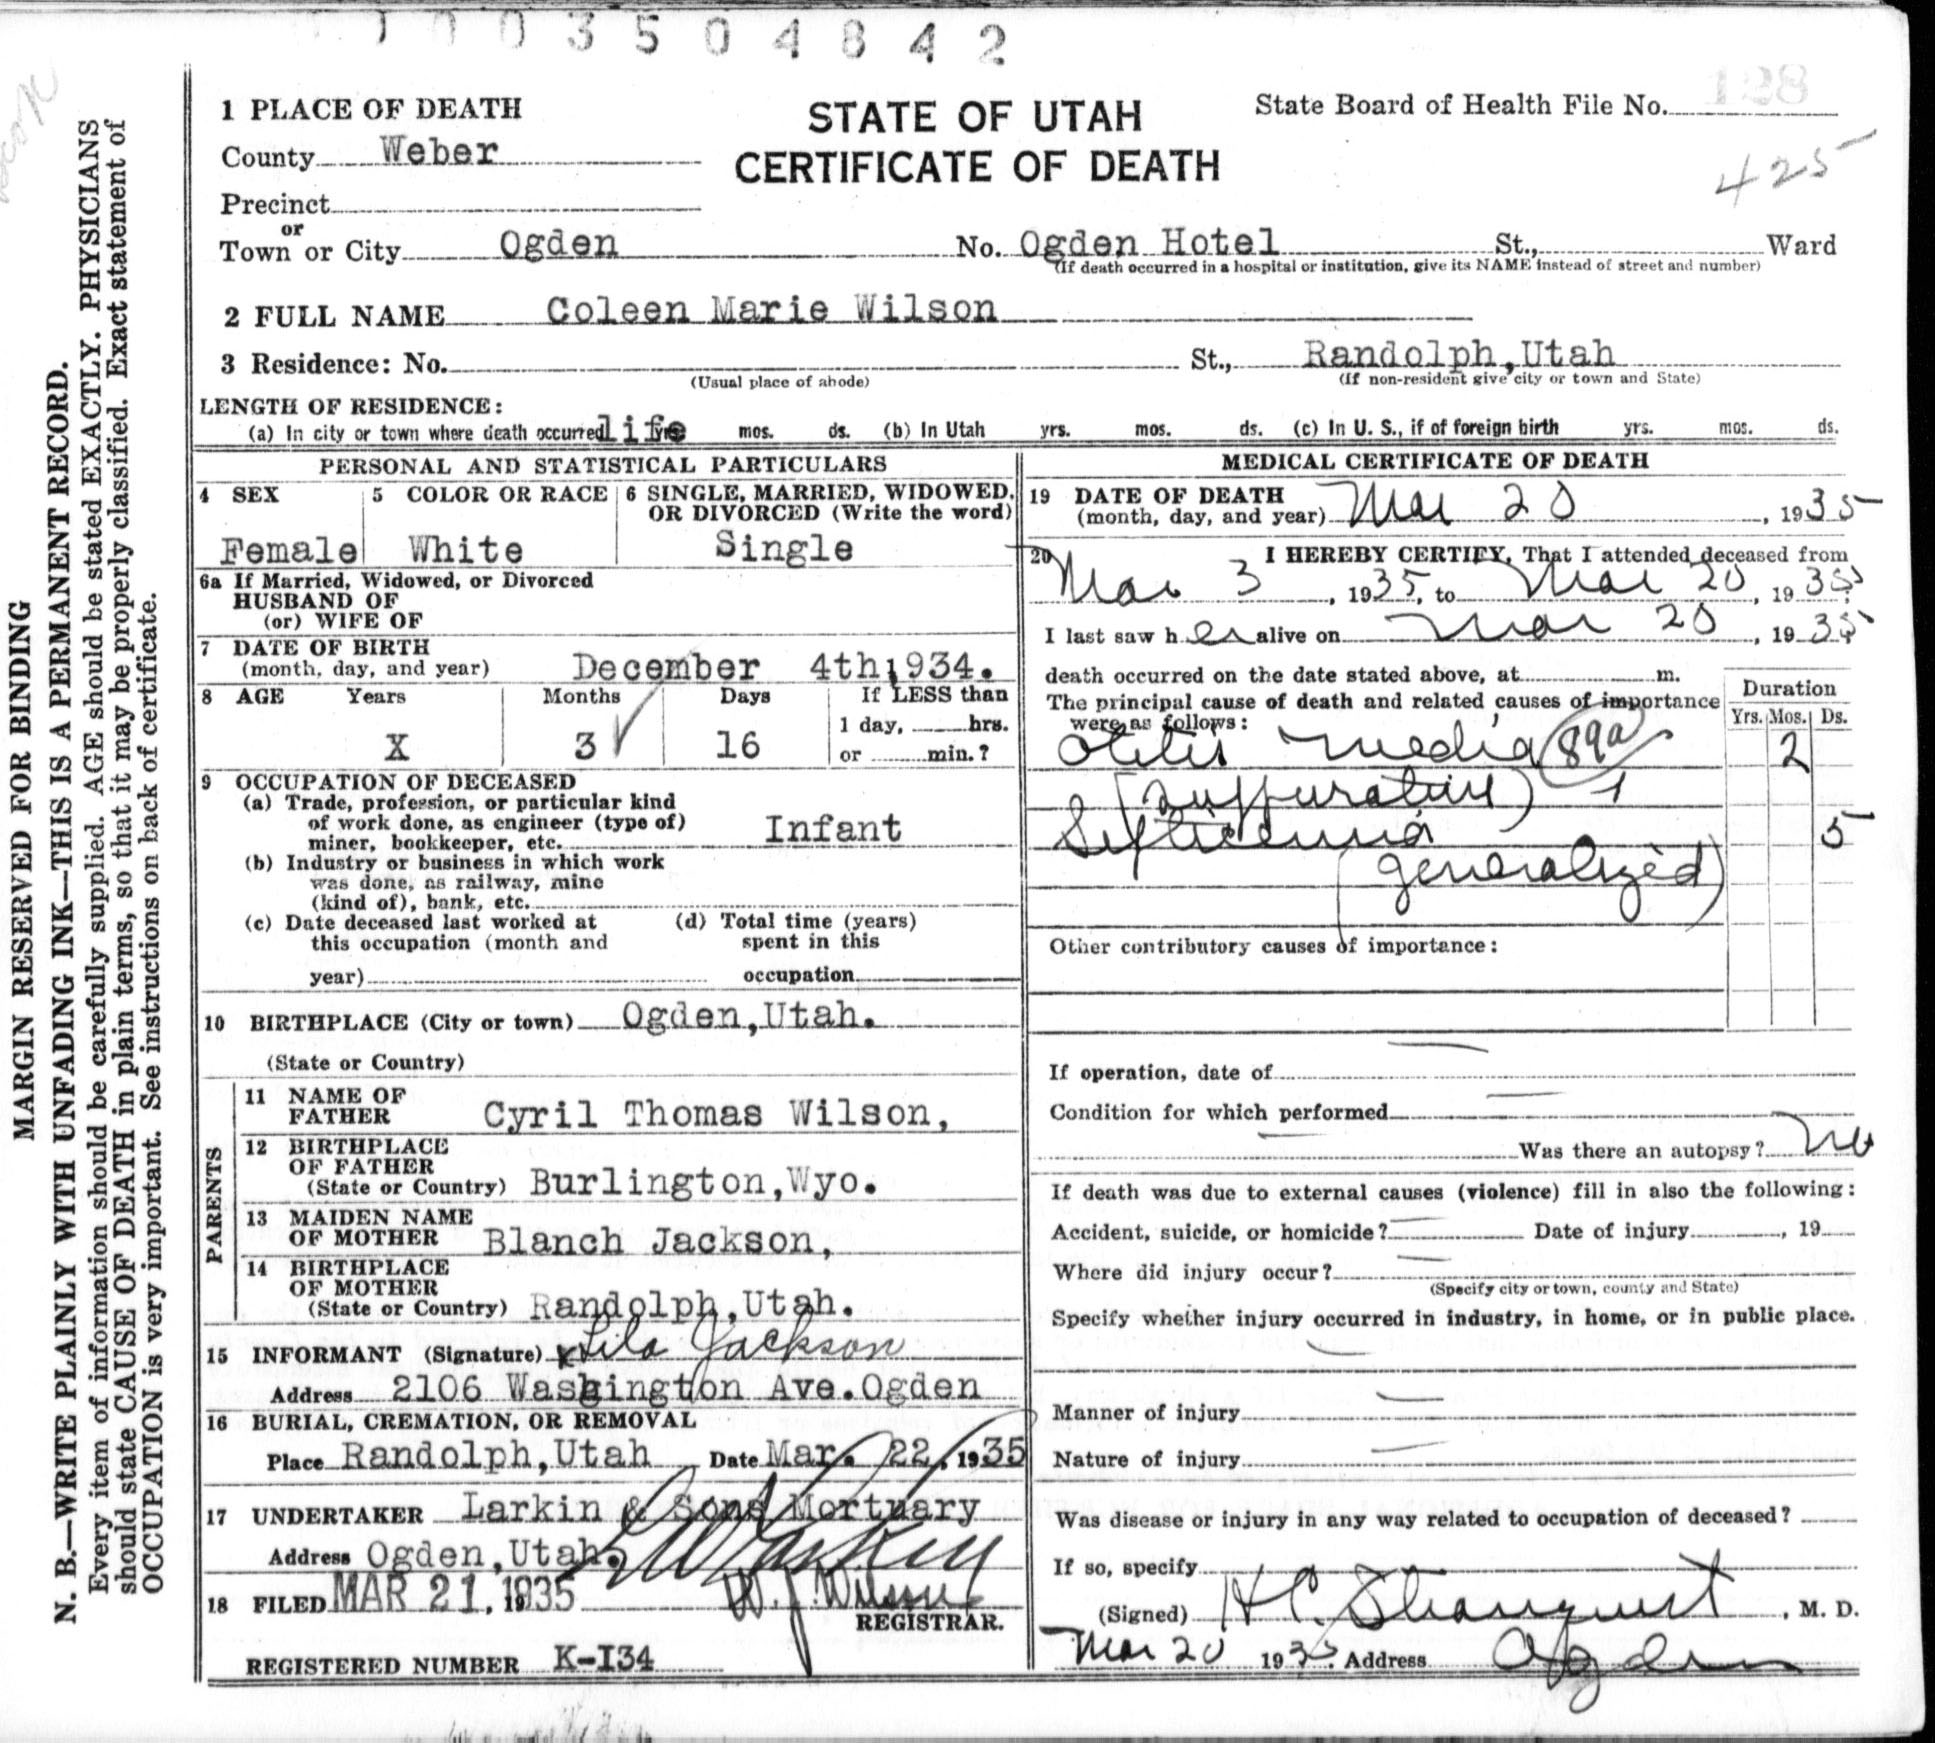 0 0 3 5 0 4 8 4 2
1 PLACE OF DEATH
STATE OF UTAH
CERTIFICATE OF DEATH
State Board of Health File No. 128
425
County Weber
Precinct
or
Town or City Ogden No. Ogden Hotel St., Ward
(If death occurred in a hospital or institution, give its NAME instead of street and number)
2 FULL NAME Coleen Marie Wilson
3 Residence: No. St., Randolph,Utah
(Usual place of abode) (If non-resident give city or town and State)
LENGTH OF RESIDENCE:
(a) In city or town where death occurred life mos. ds. (b) In Utah yrs. mos. ds. (c) In U. S., if of foreign birth yrs. mos. ds.
PERSONAL AND STATISTICAL PARTICULARS
4 SEX 5 COLOR OR RACE 6 SINGLE, MARRIED, WIDOWED, OR DIVORCED (Write the word)
Female White Single
6a If Married, Widowed, or Divorced
HUSBAND OF
(or) WIFE OF
7 DATE OF BIRTH
(month, day, and year) December 4th 1934.
8 AGE Years Months Days If LESS than
1 day, hrs.
X 3 16 or min.?
9 OCCUPATION OF DECEASED
(a) Trade, profession, or particular kind
of work done, as engineer (type of)
miner, bookkeeper, etc. Infant
(b) Industry or business in which work
was done, as railway, mine
(kind of), bank, etc.
(c) Date deceased last worked at (d) Total time (years)
this occupation (month and spent in this
year) occupation
10 BIRTHPLACE (City or town) Ogden,Utah.
(State or Country)
PARENTS
11 NAME OF
FATHER Cyril Thomas Wilson,
12 BIRTHPLACE
OF FATHER
(State or Country) Burlington,Wyo.
13 MAIDEN NAME
OF MOTHER Blanch Jackson,
14 BIRTHPLACE
OF MOTHER
(State or Country) Randolph,Utah.
15 INFORMANT (Signature) x Lila Jackson
Address 2106 Washington Ave.Ogden
16 BURIAL, CREMATION, OR REMOVAL
Place Randolph,Utah Date Mar. 22, 1935
17 UNDERTAKER Larkin & Sons Mortuary
Address Ogden,Utah.
18 FILED MAR 21, 1935 W. J. Wilson
REGISTRAR.
REGISTERED NUMBER K-I34
MEDICAL CERTIFICATE OF DEATH
19 DATE OF DEATH
(month, day, and year) Mar 20, 1935
20 I HEREBY CERTIFY, That I attended deceased from
Mar 3, 1935, to Mar 20, 1935
I last saw her alive on Mar 20, 1935
death occurred on the date stated above, at m.
The principal cause of death and related causes of importance
were as follows:
Duration
Yrs. Mos. Ds.
Otitis media 89a 2
(suppurative)
Septicemia 5
(generalized)
Other contributory causes of importance:
If operation, date of —
Condition for which performed —
— Was there an autopsy? no
If death was due to external causes (violence) fill in also the following:
Accident, suicide, or homicide? — Date of injury , 19
Where did injury occur? —
(Specify city or town, county and State)
Specify whether injury occurred in industry, in home, or in public place.
—
Manner of injury —
Nature of injury —
Was disease or injury in any way related to occupation of deceased?
If so, specify
(Signed) H C. Stranquist, M. D.
Mar 20 1935. Address Ogden
MARGIN RESERVED FOR BINDING
N. B.—WRITE PLAINLY WITH UNFADING INK—THIS IS A PERMANENT RECORD.
Every item of information should be carefully supplied. AGE should be stated EXACTLY. PHYSICIANS
should state CAUSE OF DEATH in plain terms, so that it may be properly classified. Exact statement of
OCCUPATION is very important. See instructions on back of certificate.